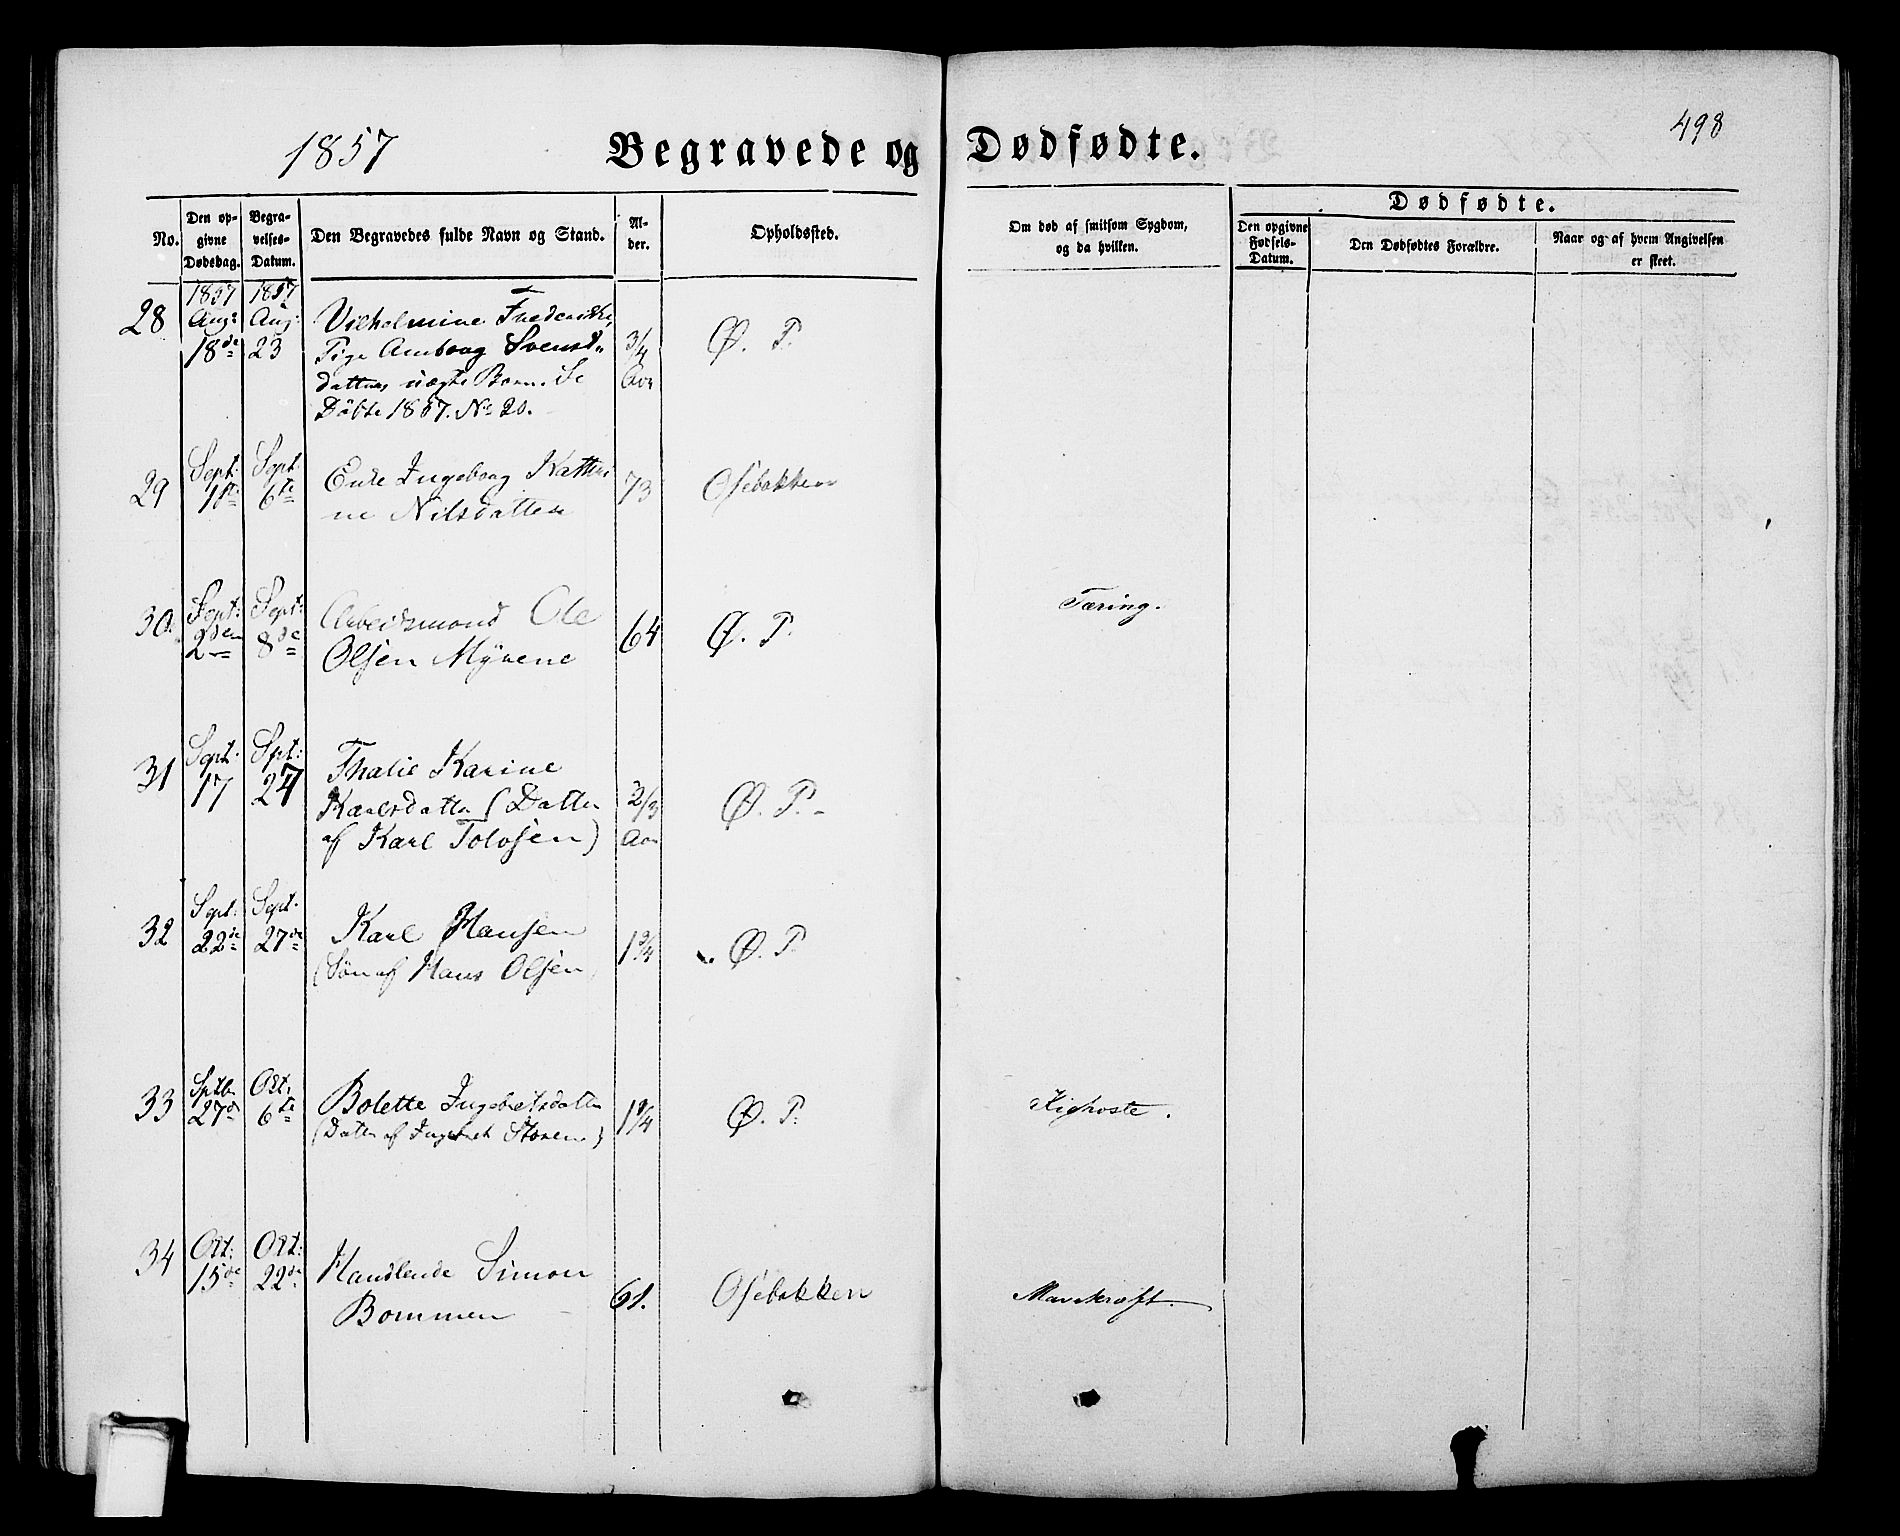 1857
Begravede og Dødfødte.
498
No.
Den opgivne Dødsdag.
Begravelses-Datum.
Den Begravedes fulde Navn og Stand.
Alder.
Opholdssted.
Om død af smitsom Sygdom, og da hvilken.
Dødfødte.
Den opgivne Fødsels-Datum.
Den Dødfødtes Forældre.
Naar og af hvem Angivelsen er skeet.
28
1857 Aug: 18de
1857 Aug: 23
Vilhelmine Frederikke,
Pige Amborg Svends-
datters uægte Barn. Se
Døbte 1857. No 20.
3/4 Aar
Ø. P.
29
Sept: 1ste
Sept: 6te
Enke Ingeborg Kathri
ne Nilsdatter
73
Osebakken
30.
Sept: 2den
Sept: 8de
Arbeidsmand Ole
Olsen Myrene
64
Ø. P.
Tæring.
31
Sept: 17
Spt: 27
Thalie Karine
Karlsdatter (Datter
af Karl Tolvsen)
2/3 Aar
Ø. P.
32
Sept: 22de
Sept. 27de
Karl Hansen
(Søn af Hans Olsen
1 3/4
Ø. P.
33
Sptbr 27d
Oct. 6te
Bolette Ingebretsdatter
(Datter af Ingebret Storen)
1 1/4
Ø. P.
Kighoste.
34
Oct: 15de
Oct: 22de
Handlende Simon
Bommen
61.
Osebakken
Mavekræft.